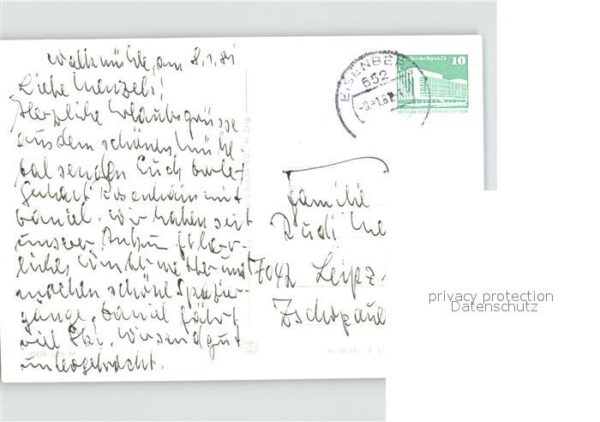 Walkmühle, am 8.1.81
Liebe Menzels!
Herzliche Urlaubsgrüsse
aus dem schönen Mühl-
tal senden Euch
Gerhard Rosenhain mit
Daniel. Wir haben seit
unserer
liches Winterwetter und
machen schöne Spazier-
gänge. Daniel fährt
viel Ski. Wir sind gut
untergebracht.
EISENBERG
652
10
Familie
Rudi Me
7042 Leipz
Zschopaue
privacy protection
Datenschutz